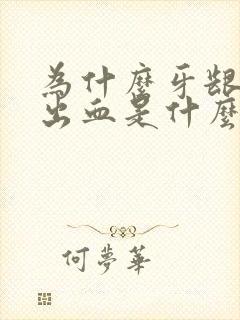 為什麼牙齦
出血是什麼
何夢華